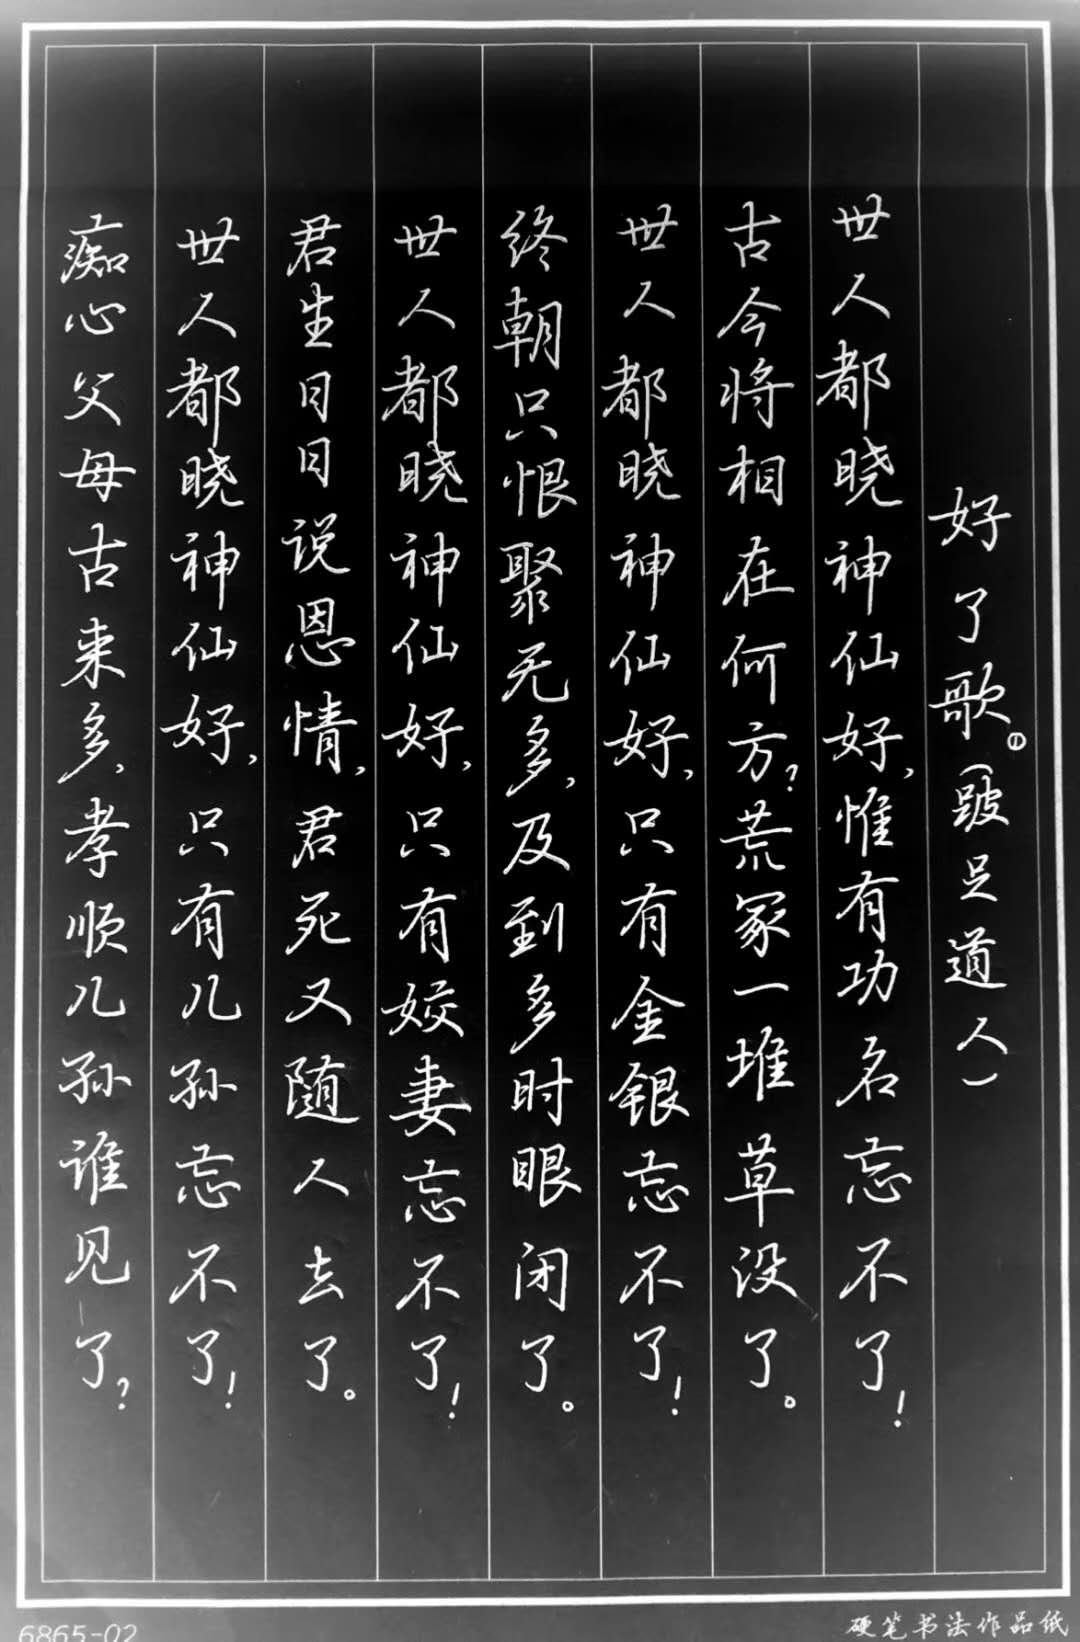 好了歌。①（跛足道人）
世人都晓神仙好，惟有功名忘不了！
古今将相在何方？荒冢一堆草没了。
世人都晓神仙好，只有金银忘不了！
终朝只恨聚无多，及到多时眼闭了。
世人都晓神仙好，只有姣妻忘不了！
君生日日说恩情，君死又随人去了。
世人都晓神仙好，只有儿孙忘不了！
痴心父母古来多，孝顺儿孙谁见了？
6865-02
硬笔书法作品纸